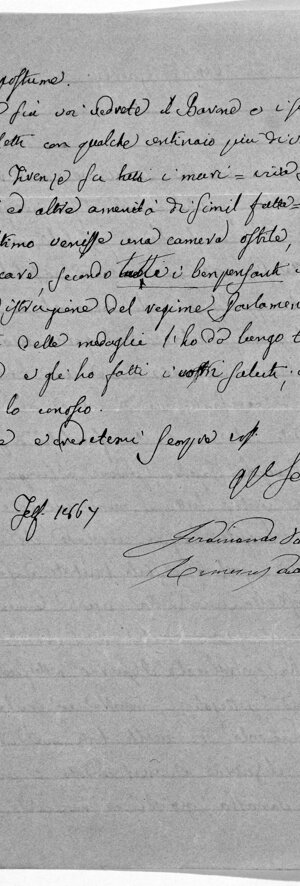 postume.
già voi vedrete il Barone e i
letti con qualche centinaio più di
Firenze su tutti i muri =
ed altre amenità di simil fatta =
timo venisse una camera ostile,
cava, secondo tutti i benpensanti
istruzione del regime Parlamen
delle medaglie l'ho da lungo t
e gli ho fatti i vostri saluti,
lo conosco.
e credetemi sempre
1867
Ferdinando
Ximenes